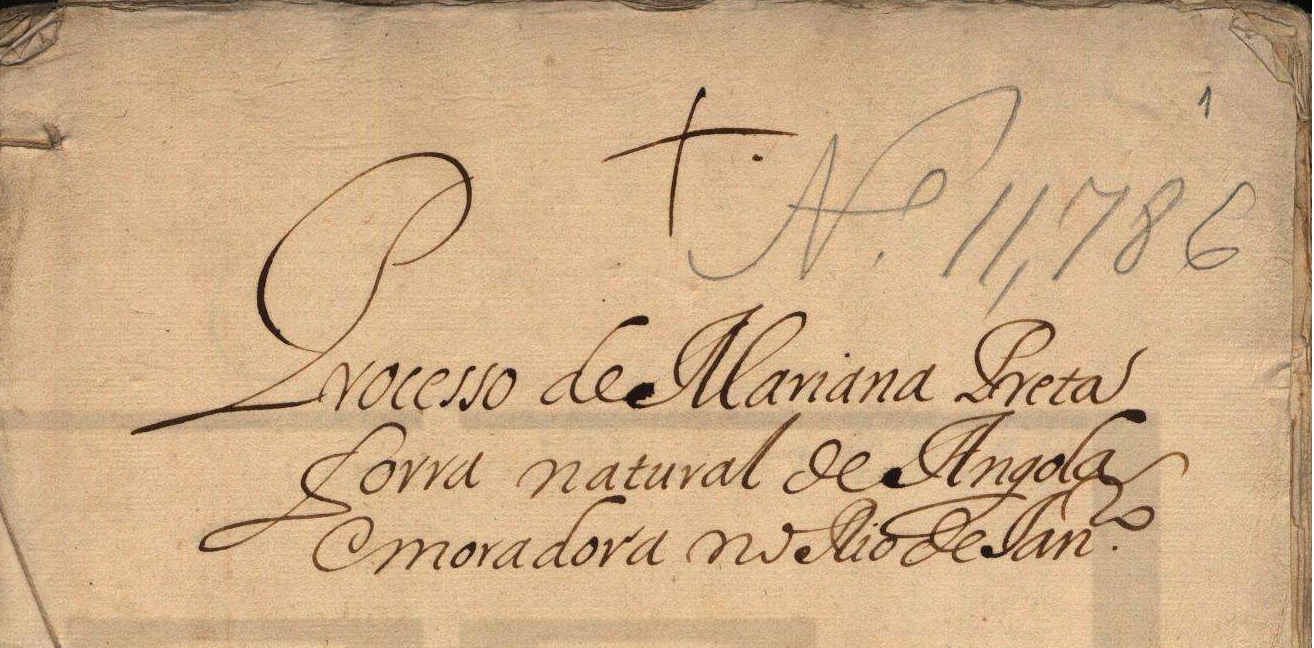 1
N.º 11,786
Processo de Mariana Preta
forra natural de Angola
e moradora no Rio de Jan.ro